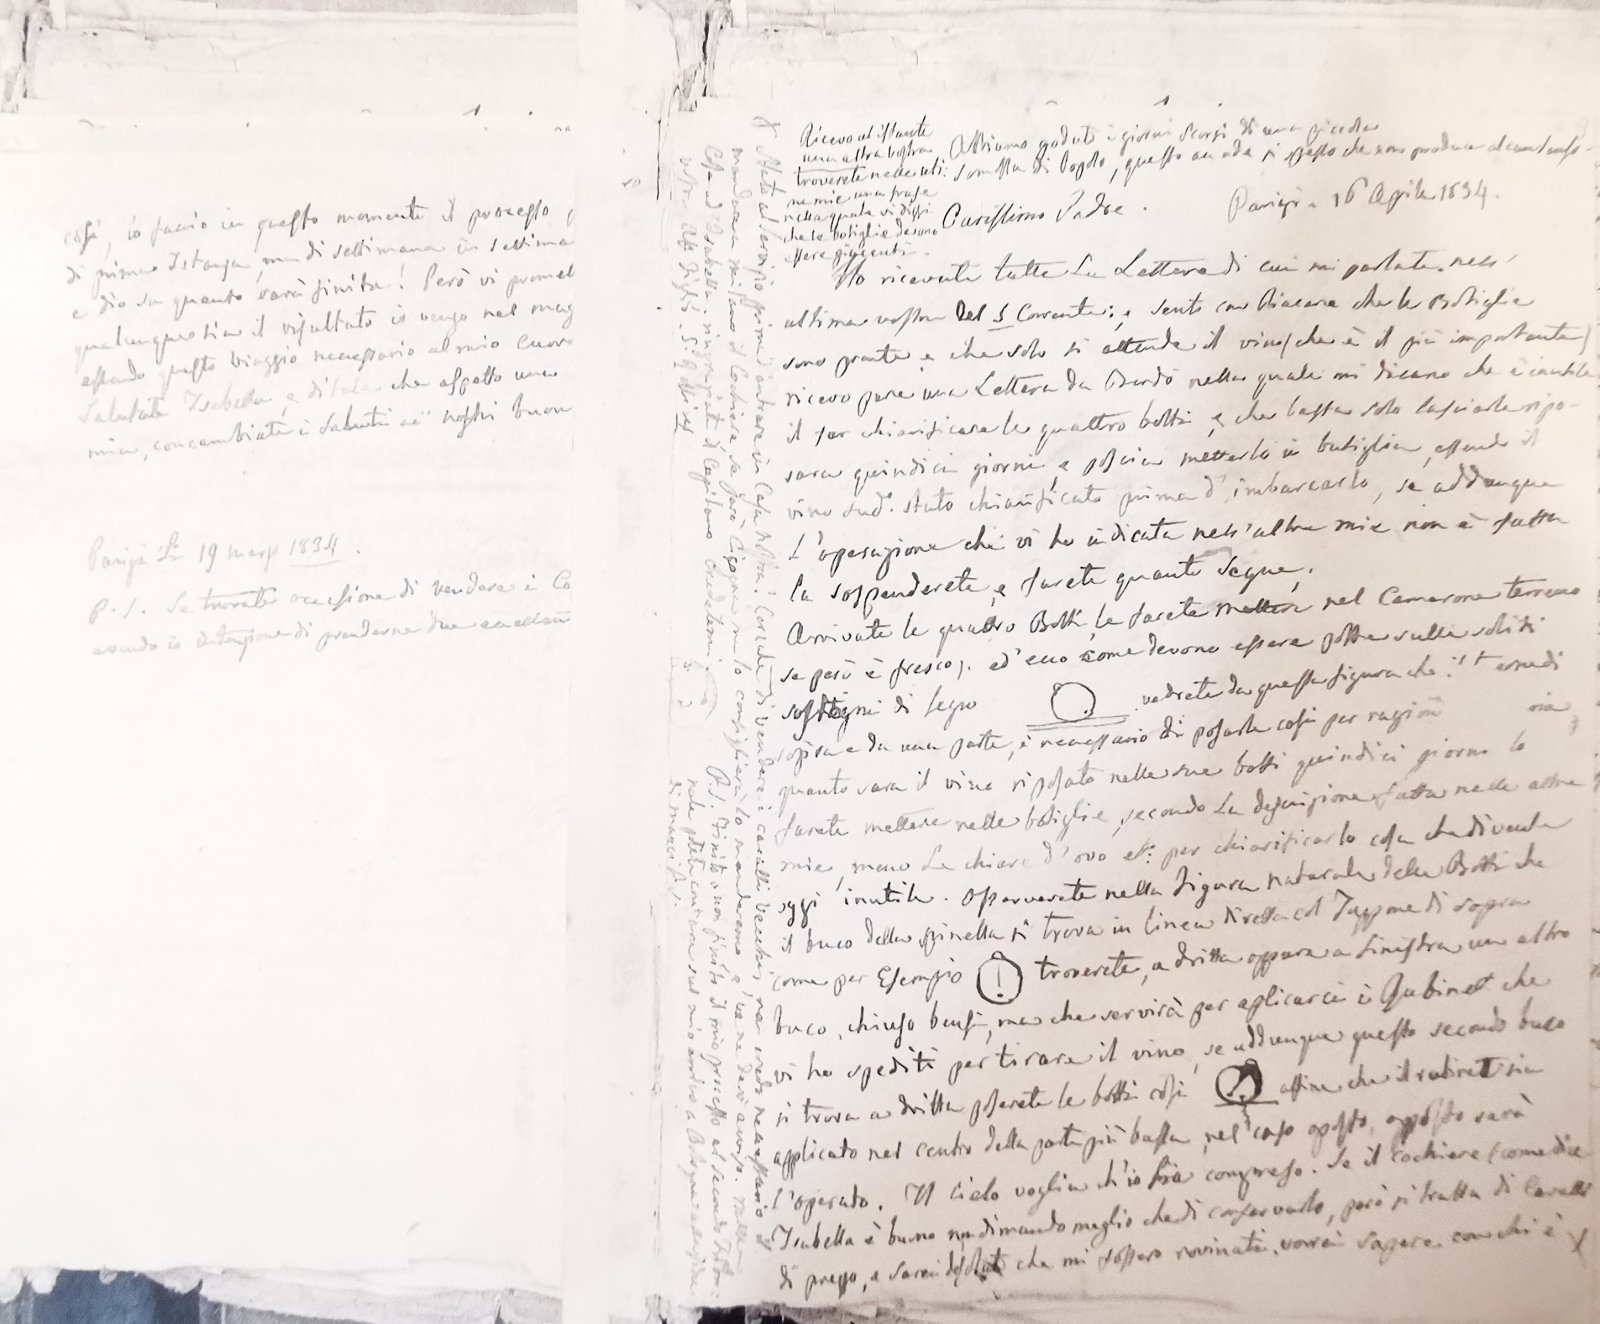 così, io faccio in questo momento il processo
di prima Istanza, ma di settimana in settima
e dio sa quanto sarà finita! Però vi promet
qualunque sia il risultato io vengo nel mag
essendo questo viaggio necessario al mio cuore
Salutate Isabella, e ditele che aspetto una
mia, concambiate i saluti ai nostri buon
Parigi li 19 marzo 1834.
P.S. Se trovate occasione di vendere i Co
avendo io intenzione di prenderne due eccellen
Ricevo al istante
una altra vostra
troverete nelle ulti:
me mie una frase
nella quale vi dissi
che le botiglie devono
essere giacenti.
Abbiamo goduto i giorni scorsi di una piccola
somossa di Popolo, questo accade si spesso che non produce alcun
Carissimo Padre.
Parigi 16 Aprile 1834.
Ho ricevute tutte le Lettere di cui mi parlate nell'
ultima vostra del 5 Corrente; e sento con piacere che le Botiglie
sono pronte e che solo si attende il vino (che è il più importante)
ricevo pure una Lettera da Bordò nella quale mi dicono che è inutile
il far chiarificare le quattro botti, e che basta solo lasciarle ripo-
sare quindici giorni, e poscia metterlo in botiglia, essendo il
vino sud. stato chiarificato prima d'imbarcarlo, se addunque
L'operazione che vi ho indicata nell'altra mia non è fatta
la sospenderete, e farete quanto segue;
Arrivate le quattro Botti, le farete mettere nel Camerone terreno
se però è fresco, ed ecco come devono essere poste sulli soliti
sostegni di legno vedrete da questa figura che
sopra e da una parte, è necessario di posarle così per ragione
quanto sarà il vino riposato nelle sue botti quindici giorni lo
farete mettere nelle botiglie, secondo la descrizione fatta nelle altre
mie, meno la chiara d'ovo et: per chiarificarlo cosa che diventa
oggi inutile. Osserverete nella figura naturale delle Botti che
il buco della spinella si trova in linea diretta col Tappone di sopra
come per Esempio troverete, a dritta oppure a sinistra un altro
buco, chiuso bensì, ma che servirà per aplicarci i Rubinet che
vi ho spediti per tirare il vino, se addunque questo secondo buco
si trova a dritta poserete le botti così affine che il rubinet sia
applicato nel centro della parte più bassa, nel caso oposto, opposto sarà
l'operato. Il cielo voglia ch'io sia compreso. Se il cochiere (come dice
Isabella è buono non dimando meglio che di conservarlo, però si tratta di Cavalli
di prezzo, e sarei desolato che mi fossero rovinati, vorrei sapere con chi è X
X stato al servizio prima d'entrare in Casa Nostra. Cercate di vendere i cavalli vecchi, ma credo necessario di
mandare mi
Casa d'Isabella, ringraziate il Cagliano credetemi
vostro Aff. Figlio.
P.S. Finito o non finito il mio processo al secondo
nulla potrà contare sul mio arrivo a Bologna alla fine
di maggio